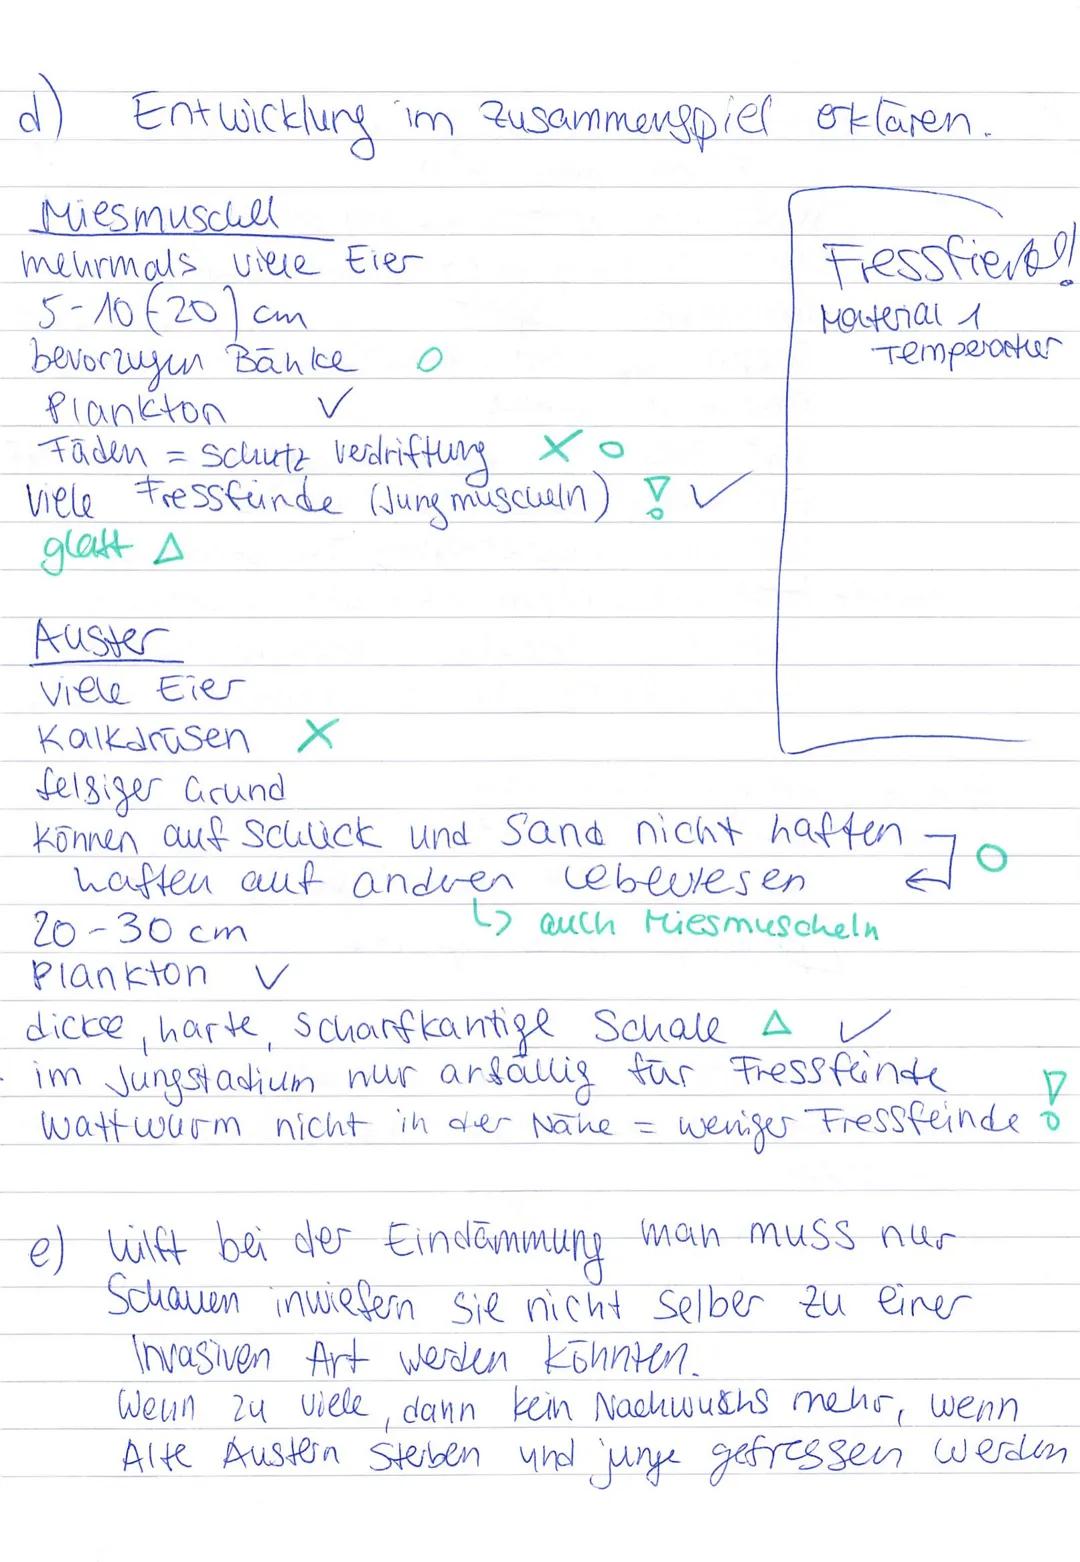 d) Entwicklung im Zusammenspiel erklären.
Miesmuschel
mehrmals viele Eier
5-10 (20) cm
bevorzugen Bänke O
Plankton ✓
Fäden = Schutz verdriftung X O
viele Fressfeinde (Jungmuscheln) ! ✓
glatt Δ
Fressfiende!
Material 1
Temperatur
Auster
viele Eier
Kalkdrüsen X
felsiger Grund
können auf Schlick und Sand nicht haften
haften auf andren Lebewesen O
↳ auch Miesmuscheln
20-30 cm
Plankton ✓
dicke, harte, scharfkantige Schale Δ ✓
im Jungstadium nur anfällig für Fressfeinde
Wattwurm nicht in der Nähe = weniger Fressfeinde !
e) hilft bei der Eindämmung man muss nur
Schauen inwiefern sie nicht selber zu einer
Invasiven Art werden könnten.
Wenn zu viele, dann kein Nachwuchs mehr, wenn
Alte Austern sterben und junge gefressen werden